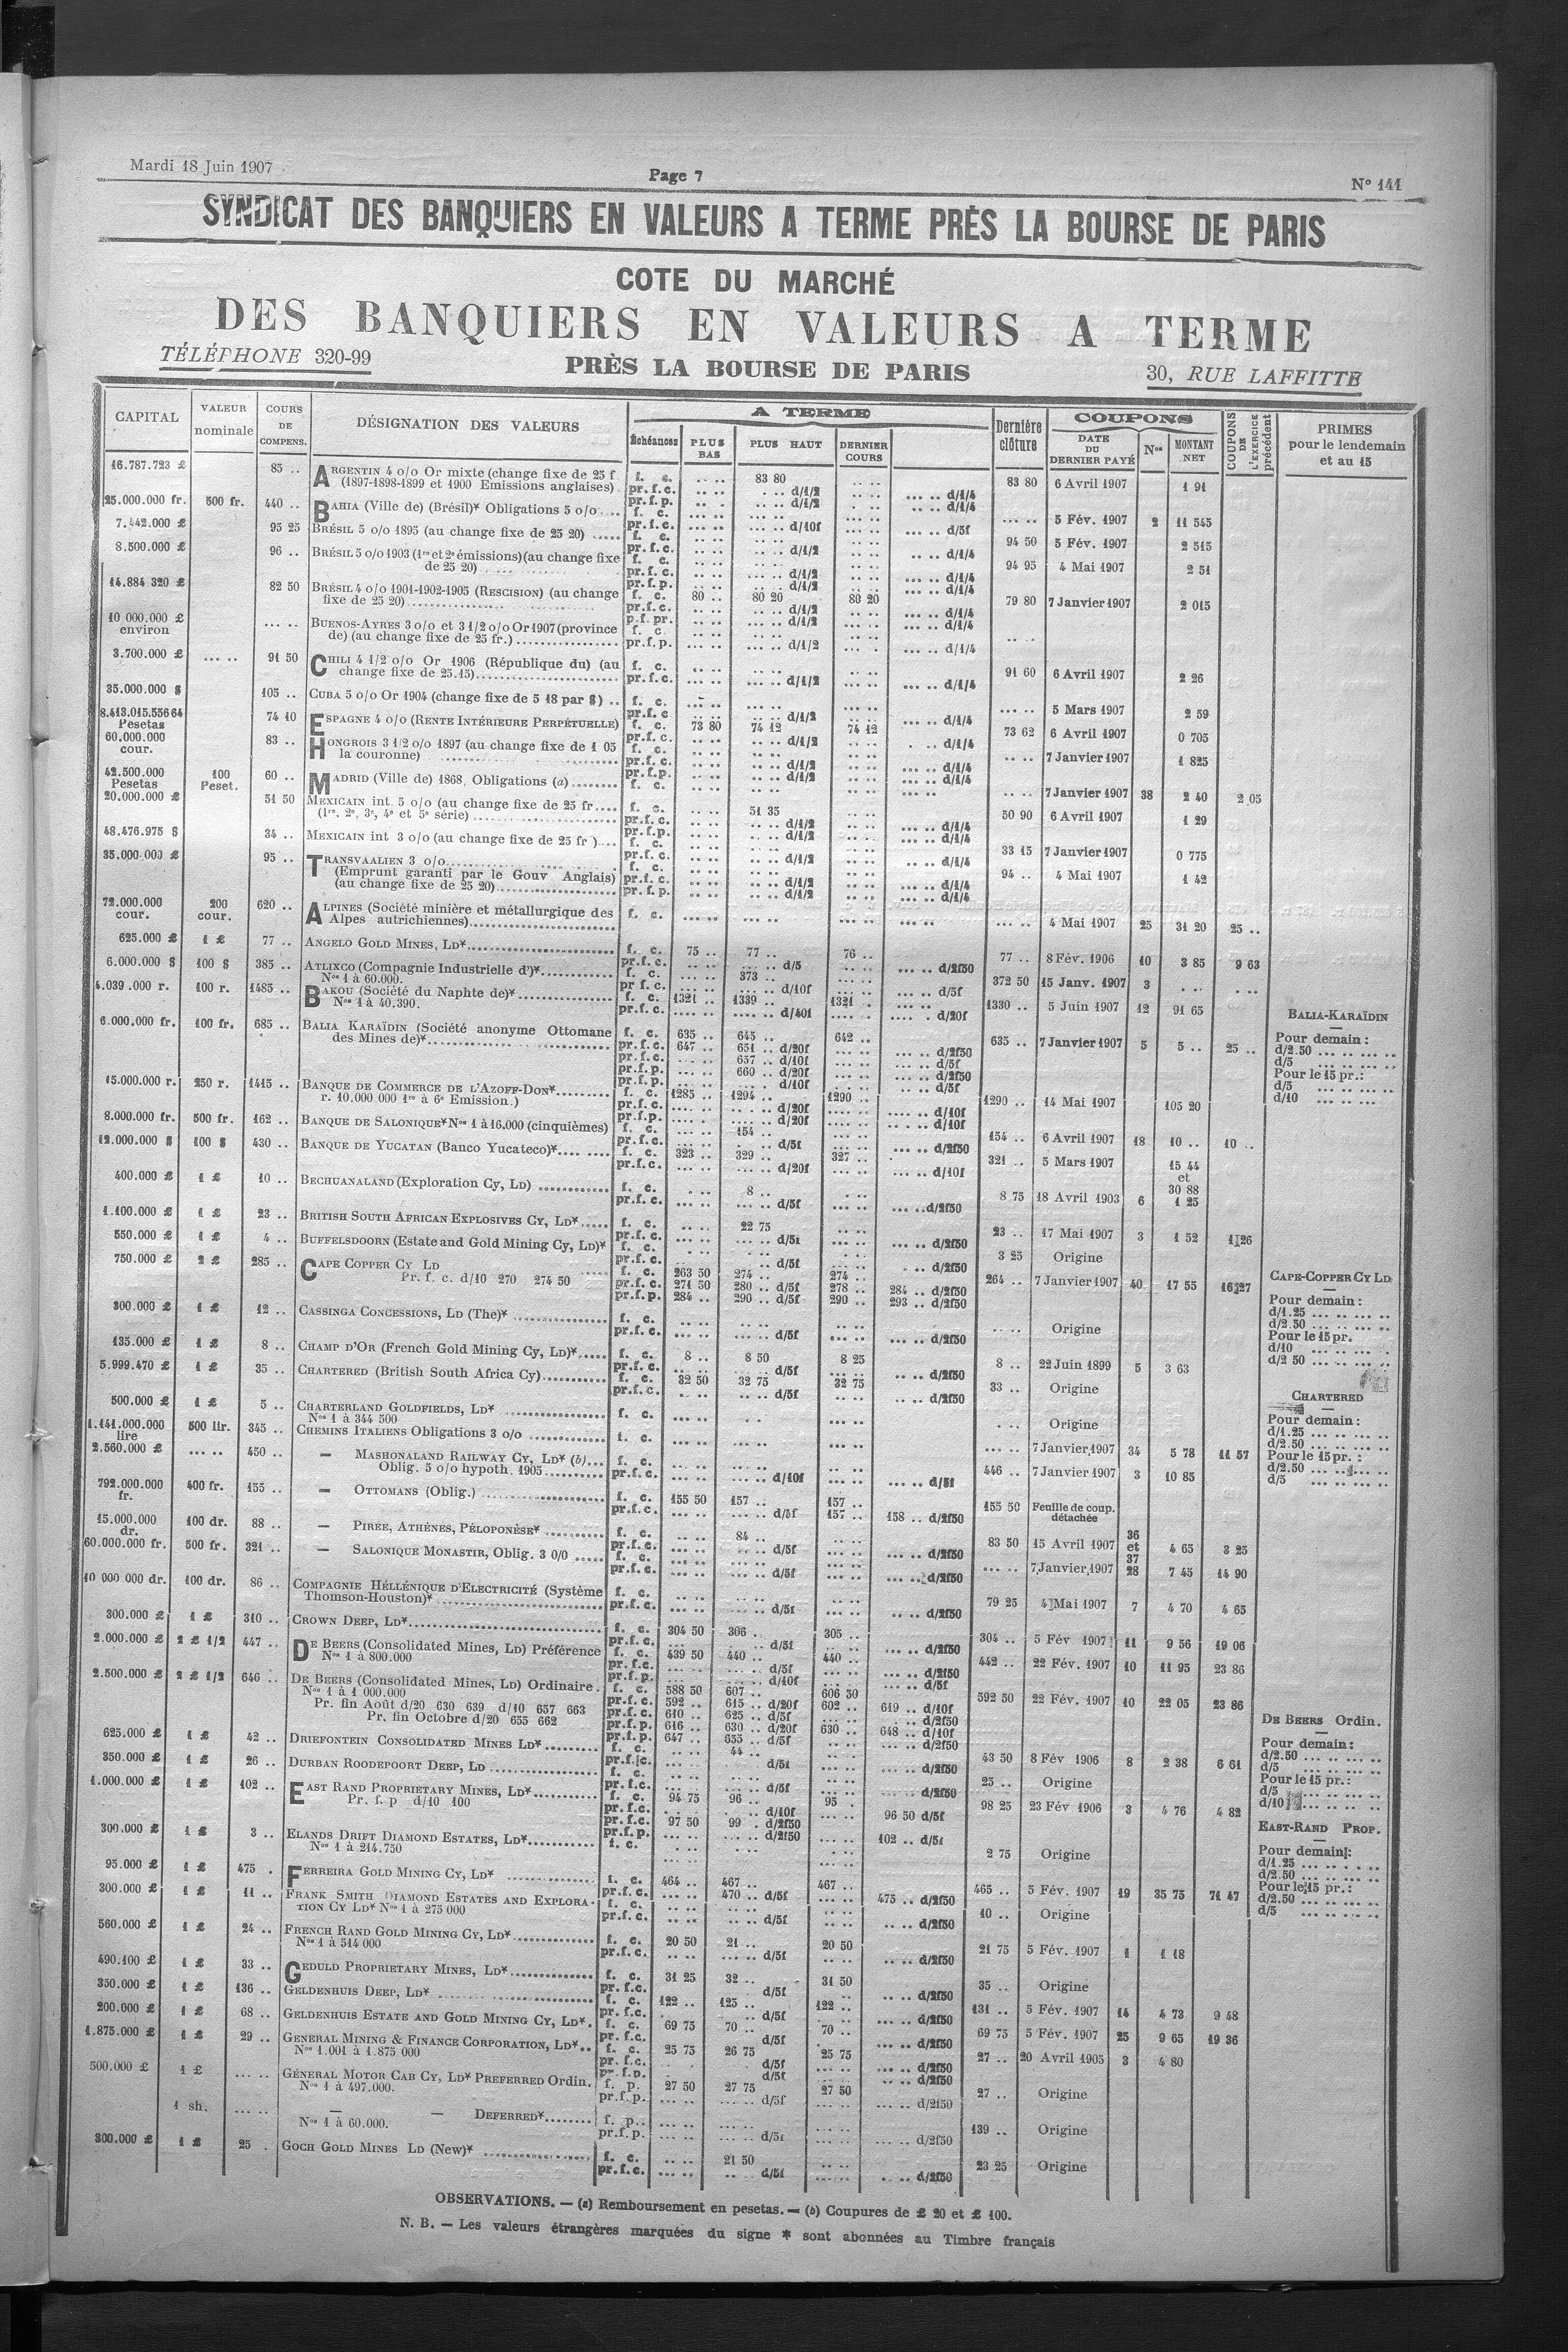 Mardi 18 Juin 1907
Page 7
N° 141
SYNDICAT DES BANQUIERS EN VALEURS A TERME PRÈS LA BOURSE DE PARIS
COTE DU MARCHÉ
DES BANQUIERS EN VALEURS A TERME
TÉLÉPHONE 320-99
PRÈS LA BOURSE DE PARIS
30, RUE LAFFITTE
CAPITAL VALEUR nominale COURS DE COMPENS. DÉSIGNATION DES VALEURS A TERME Échéances PLUS BAS PLUS HAUT DERNIER COURS Dernière clôture COUPONS DATE DU DERNIER PAYÉ Nos MONTANT NET COUPONS DE L'EXERCICE précédent PRIMES pour le lendemain et au 15
16.787.723 £ 85 .. ARGENTIN 4 o/o Or mixte (change fixe de 25 f f. c. 83 80 83 80 6 Avril 1907 1 91
(1897-1898-1899 et 1900 Emissions anglaises) pr.f.c. d/1/2 d/1/4
25.000.000 fr. 500 fr. 440 .. BAHIA (Ville de) (Brésil)* Obligations 5 o/o 5 Fév. 1907 2 11 545
7.442.000 £ 95 25 BRÉSIL 5 o/o 1895 (au change fixe de 25 20) 94 50 5 Fév. 1907 2 515
8.500.000 £ 96 .. BRÉSIL 5 o/o 1903 (1re et 2e émissions) (au change fixe 94 95 4 Mai 1907 2 51
de 25 20)
14.884.320 £ 82 50 BRÉSIL 4 o/o 1901-1902-1905 (RESCISION) (au change f. c. 80 .. 80 20 80 20 79 80 7 Janvier 1907 2 015
fixe de 25 20)
10 000.000 £ environ BUENOS-AYRES 3 o/o et 3 1/2 o/o Or 1907 (province
de) (au change fixe de 25 fr.) pr.f.p. d/1/2 d/1/4
3.700.000 £ 91 50 CHILI 4 1/2 o/o Or 1906 (République du) (au f. c. 91 60 6 Avril 1907 2 26
change fixe de 25.15) pr.f.c. d/1/2 d/1/4
35.000.000 $ 105 .. CUBA 5 o/o Or 1904 (change fixe de 5 18 par $) f. c. 5 Mars 1907 2 59
8.413.015.556 64 Pesetas 74 10 ESPAGNE 4 o/o (RENTE INTÉRIEURE PERPÉTUELLE) f. c. 73 80 74 12 74 12 73 62 6 Avril 1907 0 705
60.000.000 cour. 83 .. HONGROIS 3 1/2 o/o 1897 (au change fixe de 1 05 7 Janvier 1907 1 825
la couronne)
42.500.000 Pesetas 100 Peset. 60 .. MADRID (Ville de) 1868, Obligations (a) f. c. 7 Janvier 1907 38 2 40 2 05
20.000.000 £ 51 50 MEXICAIN int. 5 o/o (au change fixe de 25 fr. f. c. 51 35 50 90 6 Avril 1907 1 29
(1re, 2e, 3e, 4e et 5e série)
48.476.975 $ 34 .. MEXICAIN int 3 o/o (au change fixe de 25 fr) 33 15 7 Janvier 1907 0 775
35.000.000 £ 95 .. TRANSVAALIEN 3 o/o 94 .. 4 Mai 1907 1 42
(Emprunt garanti par le Gouv Anglais)
(au change fixe de 25 20)
72.000.000 cour. 200 cour. 620 .. ALPINES (Société minière et métallurgique des f. c. 4 Mai 1907 25 31 20 25 ..
Alpes autrichiennes)
625.000 £ 1 £ 77 .. ANGELO GOLD MINES, LD* f. c. 75 .. 77 .. 76 .. 77 .. 8 Fév. 1906 10 3 85 9 63
6.000.000 $ 100 $ 385 .. ATLIXCO (Compagnie Industrielle d')* f. c. 373 .. 372 50 15 Janv. 1907 3
Nos 1 à 60.000.
4.039.000 r. 100 r. 1485 .. BAKOU (Société du Naphte de)* f. c. 1321 .. 1339 .. 1321 . 1330 .. 5 Juin 1907 12 91 65
Nos 1 à 40.390. pr.f.c. d/40f d/20f
6.000.000 fr. 100 fr. 685 .. BALIA KARAÏDIN (Société anonyme Ottomane f. c. 635 .. 645 .. 642 .. 635 .. 7 Janvier 1907 5 5 .. 25 ..
des Mines de)* pr.f.c. 647 .. 651 .. d/20f d/2f50
pr.f.c. 657 .. d/10f d/5f
pr.f.p. 660 .. d/20f d/2f50
pr.f.p. d/10f d/5f
15.000.000 r. 250 r. 1415 .. BANQUE DE COMMERCE DE L'AZOFF-DON* f. c. 1285 .. 1294 .. 1290 .. 1290 .. 14 Mai 1907 105 20
r. 10.000 000 1re à 6e Emission.)
8.000.000 fr. 500 fr. 162 .. BANQUE DE SALONIQUE* Nos 1 à 16,000 (cinquièmes) f. c. 154 .. 154 .. 6 Avril 1907 18 10 .. 10 ..
12.000.000 $ 100 $ 430 .. BANQUE DE YUCATAN (Banco Yucateco)* f. c. 323 .. 329 .. 327 .. 321 .. 5 Mars 1907 15 44 et 30 88
400.000 £ 1 £ 10 .. BECHUANALAND (Exploration Cy, LD) f. c. 8 .. 8 75 18 Avril 1903 6 1 25
1.100.000 £ 1 £ 23 .. BRITISH SOUTH AFRICAN EXPLOSIVES CY, LD* f. c. 22 75 23 .. 17 Mai 1907 3 1 52 1 26
550.000 £ 1 £ 4 .. BUFFELSDOORN (Estate and Gold Mining Cy, LD)* f. c. 3 25 Origine
750.000 £ 2 £ 285 .. CAPE COPPER CY LD f. c. 263 50 274 .. 274 .. 264 .. 7 Janvier 1907 40 17 55 16 27
Pr. f. c. d/10 270 274 50 pr.f.c. 271 50 280 .. d/5f 278 .. 284 .. d/2f50
pr.f.p. 284 .. 290 .. d/5f 290 .. 293 .. d/2f50
300.000 £ 1 £ 12 .. CASSINGA CONCESSIONS, LD (The)* f. c. Origine
135.000 £ 1 £ 8 .. CHAMP D'OR (French Gold Mining Cy, LD)* f. c. 8 .. 8 50 8 25 8 .. 22 Juin 1899 5 3 63
5.999.470 £ 1 £ 35 .. CHARTERED (British South Africa Cy) f. c. 32 50 32 75 32 75 33 .. Origine
500.000 £ 1 £ 5 .. CHARTERLAND GOLDFIELDS, LD* f. c. Origine
Nos 1 à 344 500
1.141.000.000 lire 500 lir. 345 .. CHEMINS ITALIENS Obligations 3 o/o f. c. 7 Janvier 1907 34 5 78 11 57
2.560.000 £ 450 .. — MASHONALAND RAILWAY CY, LD* (b) f. c. 446 .. 7 Janvier 1907 3 10 85
Oblig. 5 o/o hypoth. 1905 pr.f.c. d/10f d/5f
792.000.000 fr. 400 fr. 155 .. — OTTOMANS (Oblig.) f. c. 155 50 157 .. 157 .. 155 50 Feuille de coup. détachée
pr.f.c. d/5f 157 .. 158 .. d/2f50
15.000.000 dr. 100 dr. 88 .. — PIRÉE, ATHÈNES, PÉLOPONÈSE* f. c. 84 .. 83 50 15 Avril 1907 36 et 37 4 65 3 25
60.000.000 fr. 500 fr. 321 .. — SALONIQUE MONASTIR, Oblig. 3 0/0 f. c. 7 Janvier 1907 28 7 45 14 90
10 000 000 dr. 100 dr. 86 .. COMPAGNIE HÉLLÉNIQUE D'ELECTRICITÉ (Système f. c. 79 25 4 Mai 1907 7 4 70 4 65
Thomson-Houston)* pr.f.c. d/5f d/2f50
300.000 £ 1 £ 310 .. CROWN DEEP, LD* f. c. 304 50 306 .. 305 .. 304 .. 5 Fév 1907 11 9 56 19 06
2.000.000 £ 2 £ 1/2 447 .. DE BEERS (Consolidated Mines, LD) Préférence f. c. 439 50 440 .. 440 .. 442 .. 22 Fév. 1907 10 11 95 23 86
Nos 1 à 800.000
2.500.000 £ 2 £ 1/2 646 .. DE BEERS (Consolidated Mines, LD) Ordinaire f. c. 588 50 607 .. 606 50 592 50 22 Fév. 1907 10 22 05 23 86
Nos 1 à 1 000.000 pr.f.c. 592 .. 615 .. d/20f 602 .. 619 .. d/10f
Pr. fin Août d/20 630 639 d/10 657 663 pr.f.c. 610 .. 625 .. d/5f d/2f50
Pr. fin Octobre d/20 655 662 pr.f.p. 616 .. 630 .. d/20f 630 .. 648 .. d/10f
pr.f.p. 647 .. 655 .. d/5f d/2f50
625.000 £ 1 £ 42 .. DRIEFONTEIN CONSOLIDATED MINES LD* f. c. 44 .. 43 50 8 Fév 1906 8 2 38 6 61
350.000 £ 1 £ 26 .. DURBAN ROODEPOORT DEEP, LD f. c. 25 .. Origine
1.000.000 £ 1 £ 102 .. EAST RAND PROPRIETARY MINES, LD* f. c. 94 75 96 .. 95 .. 98 25 23 Fév 1906 3 4 76 4 82
Pr. f. p d/10 100 pr.f.c. d/10f 96 50 d/5f
pr.f.c. 97 50 99 . d/2f50
pr.f.p. d/2f50 102 .. d/5f
300.000 £ 1 £ 3 .. ELANDS DRIFT DIAMOND ESTATES, LD* f. c. 2 75 Origine
Nos 1 à 214.750
95.000 £ 1 £ 475 . FERREIRA GOLD MINING CY, LD* f. c. 464 .. 467 .. 467 .. 465 .. 5 Fév. 1907 19 35 75 71 47
pr.f.c. 470 .. d/5f 475 .. d/2f50
300.000 £ 1 £ 11 .. FRANK SMITH DIAMOND ESTATES AND EXPLORA- f. c. 10 .. Origine
TION CY LD* Nos 1 à 275 000 pr.f.c. d/5f d/2f50
560.000 £ 1 £ 24 .. FRENCH RAND GOLD MINING CY, LD* f. c. 20 50 21 .. 20 50 21 75 5 Fév. 1907 1 1 18
Nos 1 à 514 000 pr.f.c. d/5f d/2f50
490.100 £ 1 £ 33 .. GEDULD PROPRIETARY MINES, LD* f. c. 31 25 32 .. 31 50 35 .. Origine
350.000 £ 1 £ 136 .. GELDENHUIS DEEP, LD* f. c. 122 .. 125 .. 122 .. 131 .. 5 Fév. 1907 14 4 73 9 48
200.000 £ 1 £ 68 .. GELDENHUIS ESTATE AND GOLD MINING CY, LD* f. c. 69 75 70 .. 70 .. 69 75 5 Fév. 1907 25 9 65 19 36
1.875.000 £ 1 £ 29 .. GENERAL MINING & FINANCE CORPORATION, LD* f. c. 25 75 26 75 25 75 27 .. 20 Avril 1905 3 4 80
Nos 1.001 à 1.875 000
500.000 £ 1 £ GÉNÉRAL MOTOR CAB CY, LD* PREFERRED Ordin. f. p. 27 50 27 75 27 50 27 .. Origine
Nos 1 à 497.000. pr.f.p. d/5f d/2f50
1 sh. — — DEFERRED* f. p. 139 .. Origine
Nos 1 à 60.000. pr.f.p. d/5f d/2f50
300.000 £ 1 £ 25 . GOCH GOLD MINES LD (New)* f. c. 21 50 23 25 Origine
pr.f.c. d/5f d/2f50
BALIA-KARAÏDIN
Pour demain :
d/2.50
d/5
Pour le 15 pr.:
d/5
d/10
CAPE-COPPER CY LD
Pour demain :
d/1.25
d/2.50
Pour le 15 pr.
d/10
d/2 50
CHARTERED
Pour demain :
d/1.25
d/2.50
Pour le 15 pr. :
d/2.50
d/5
DE BEERS Ordin.
Pour demain :
d/2.50
d/5
Pour le 15 pr.:
d/5
d/10
EAST-RAND PROP.
Pour demain :
d/1.25
d/2.50
Pour le 15 pr. :
d/2.50
d/5
OBSERVATIONS. — (a) Remboursement en pesetas. — (b) Coupures de £ 20 et £ 100.
N. B. — Les valeurs étrangères marquées du signe * sont abonnées au Timbre français